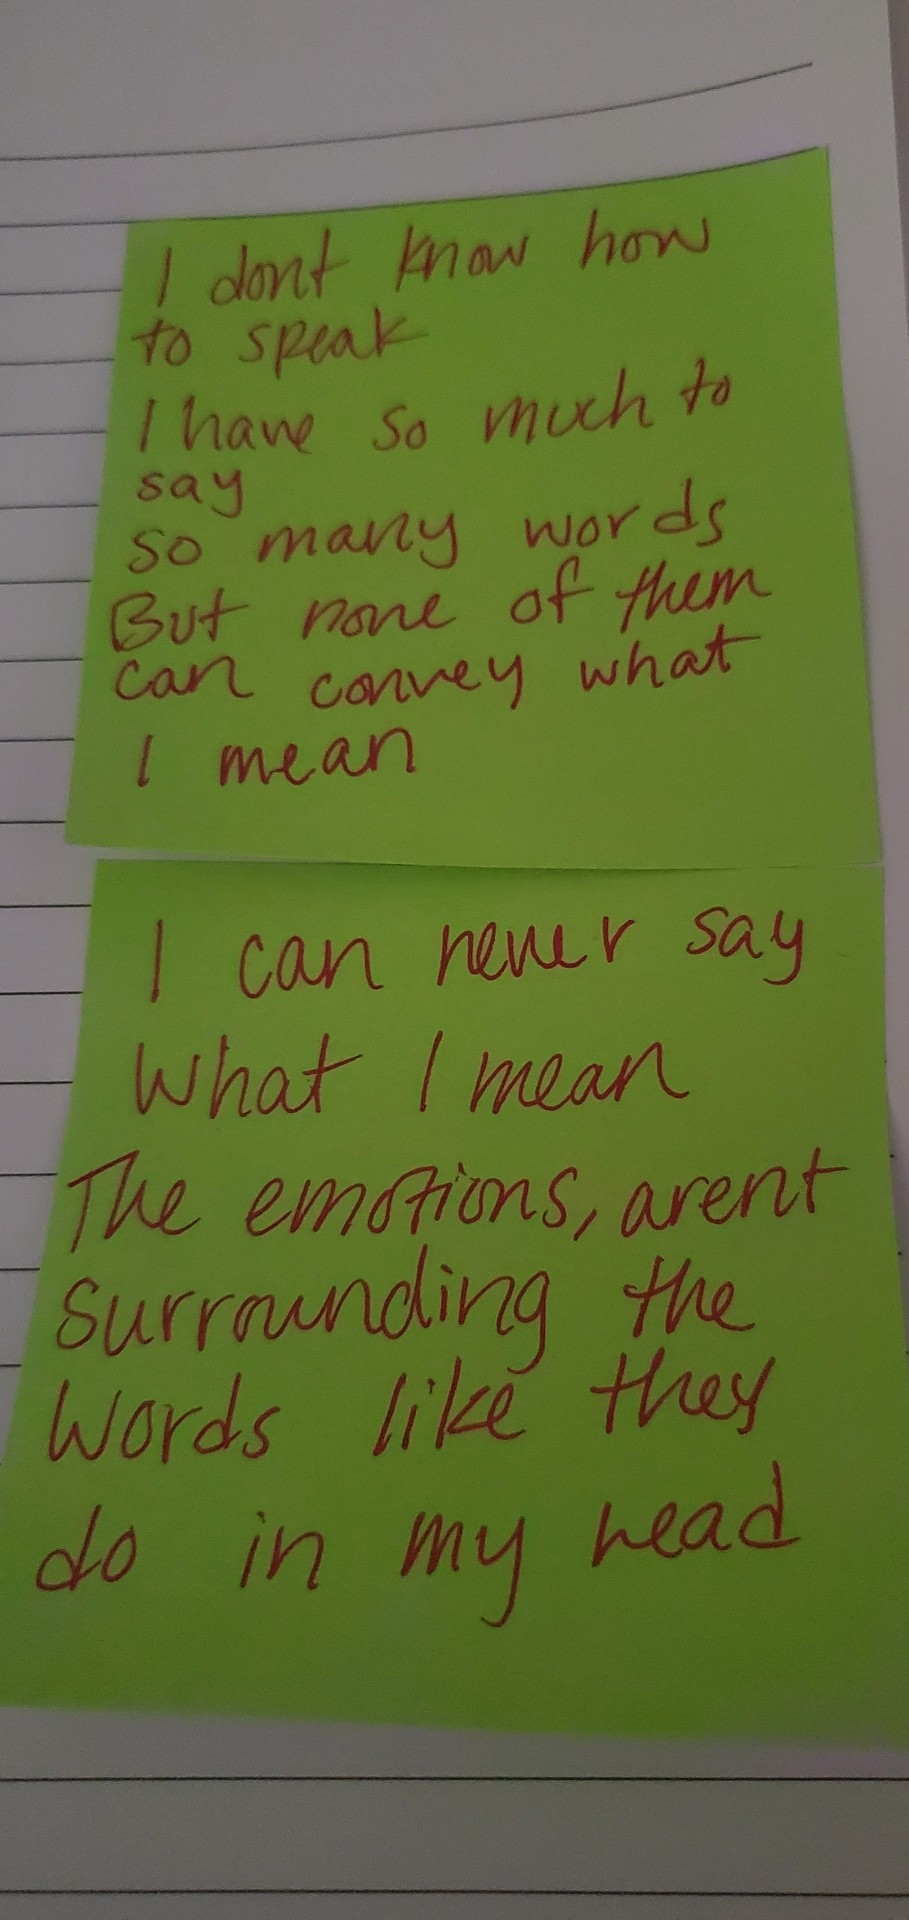 I dont know how
to speak
I have so much to
say
so many words
But none of them
can convey what
I mean
I can never say
What I mean
The emotions, arent
surrounding the
words like they
do in my head